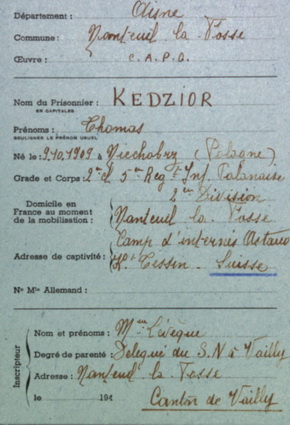 Département : Aisne
Commune : Nanteuil la Fosse
Œuvre : C.A.P.O.
Nom du Prisonnier : KEDZIOR
EN CAPITALES
Prénoms : Thomas
SOULIGNER LE PRÉNOM USUEL
Né le : 9.10.1909 à (Pologne)
Grade et Corps : 2e cl 5me Reg Inf. Polonaise
2me Division
Domicile en France au moment de la mobilisation : Nanteuil la Fosse
Adresse de captivité : Camp d'internés
Ct Tessin. Suisse
No Mle Allemand :
Inscripteur
Nom et prénoms : Mme Lévêque
Degré de parenté : Délégué du S.N à Vailly
Adresse : Nanteuil la Fosse
le 194 Canton de Vailly